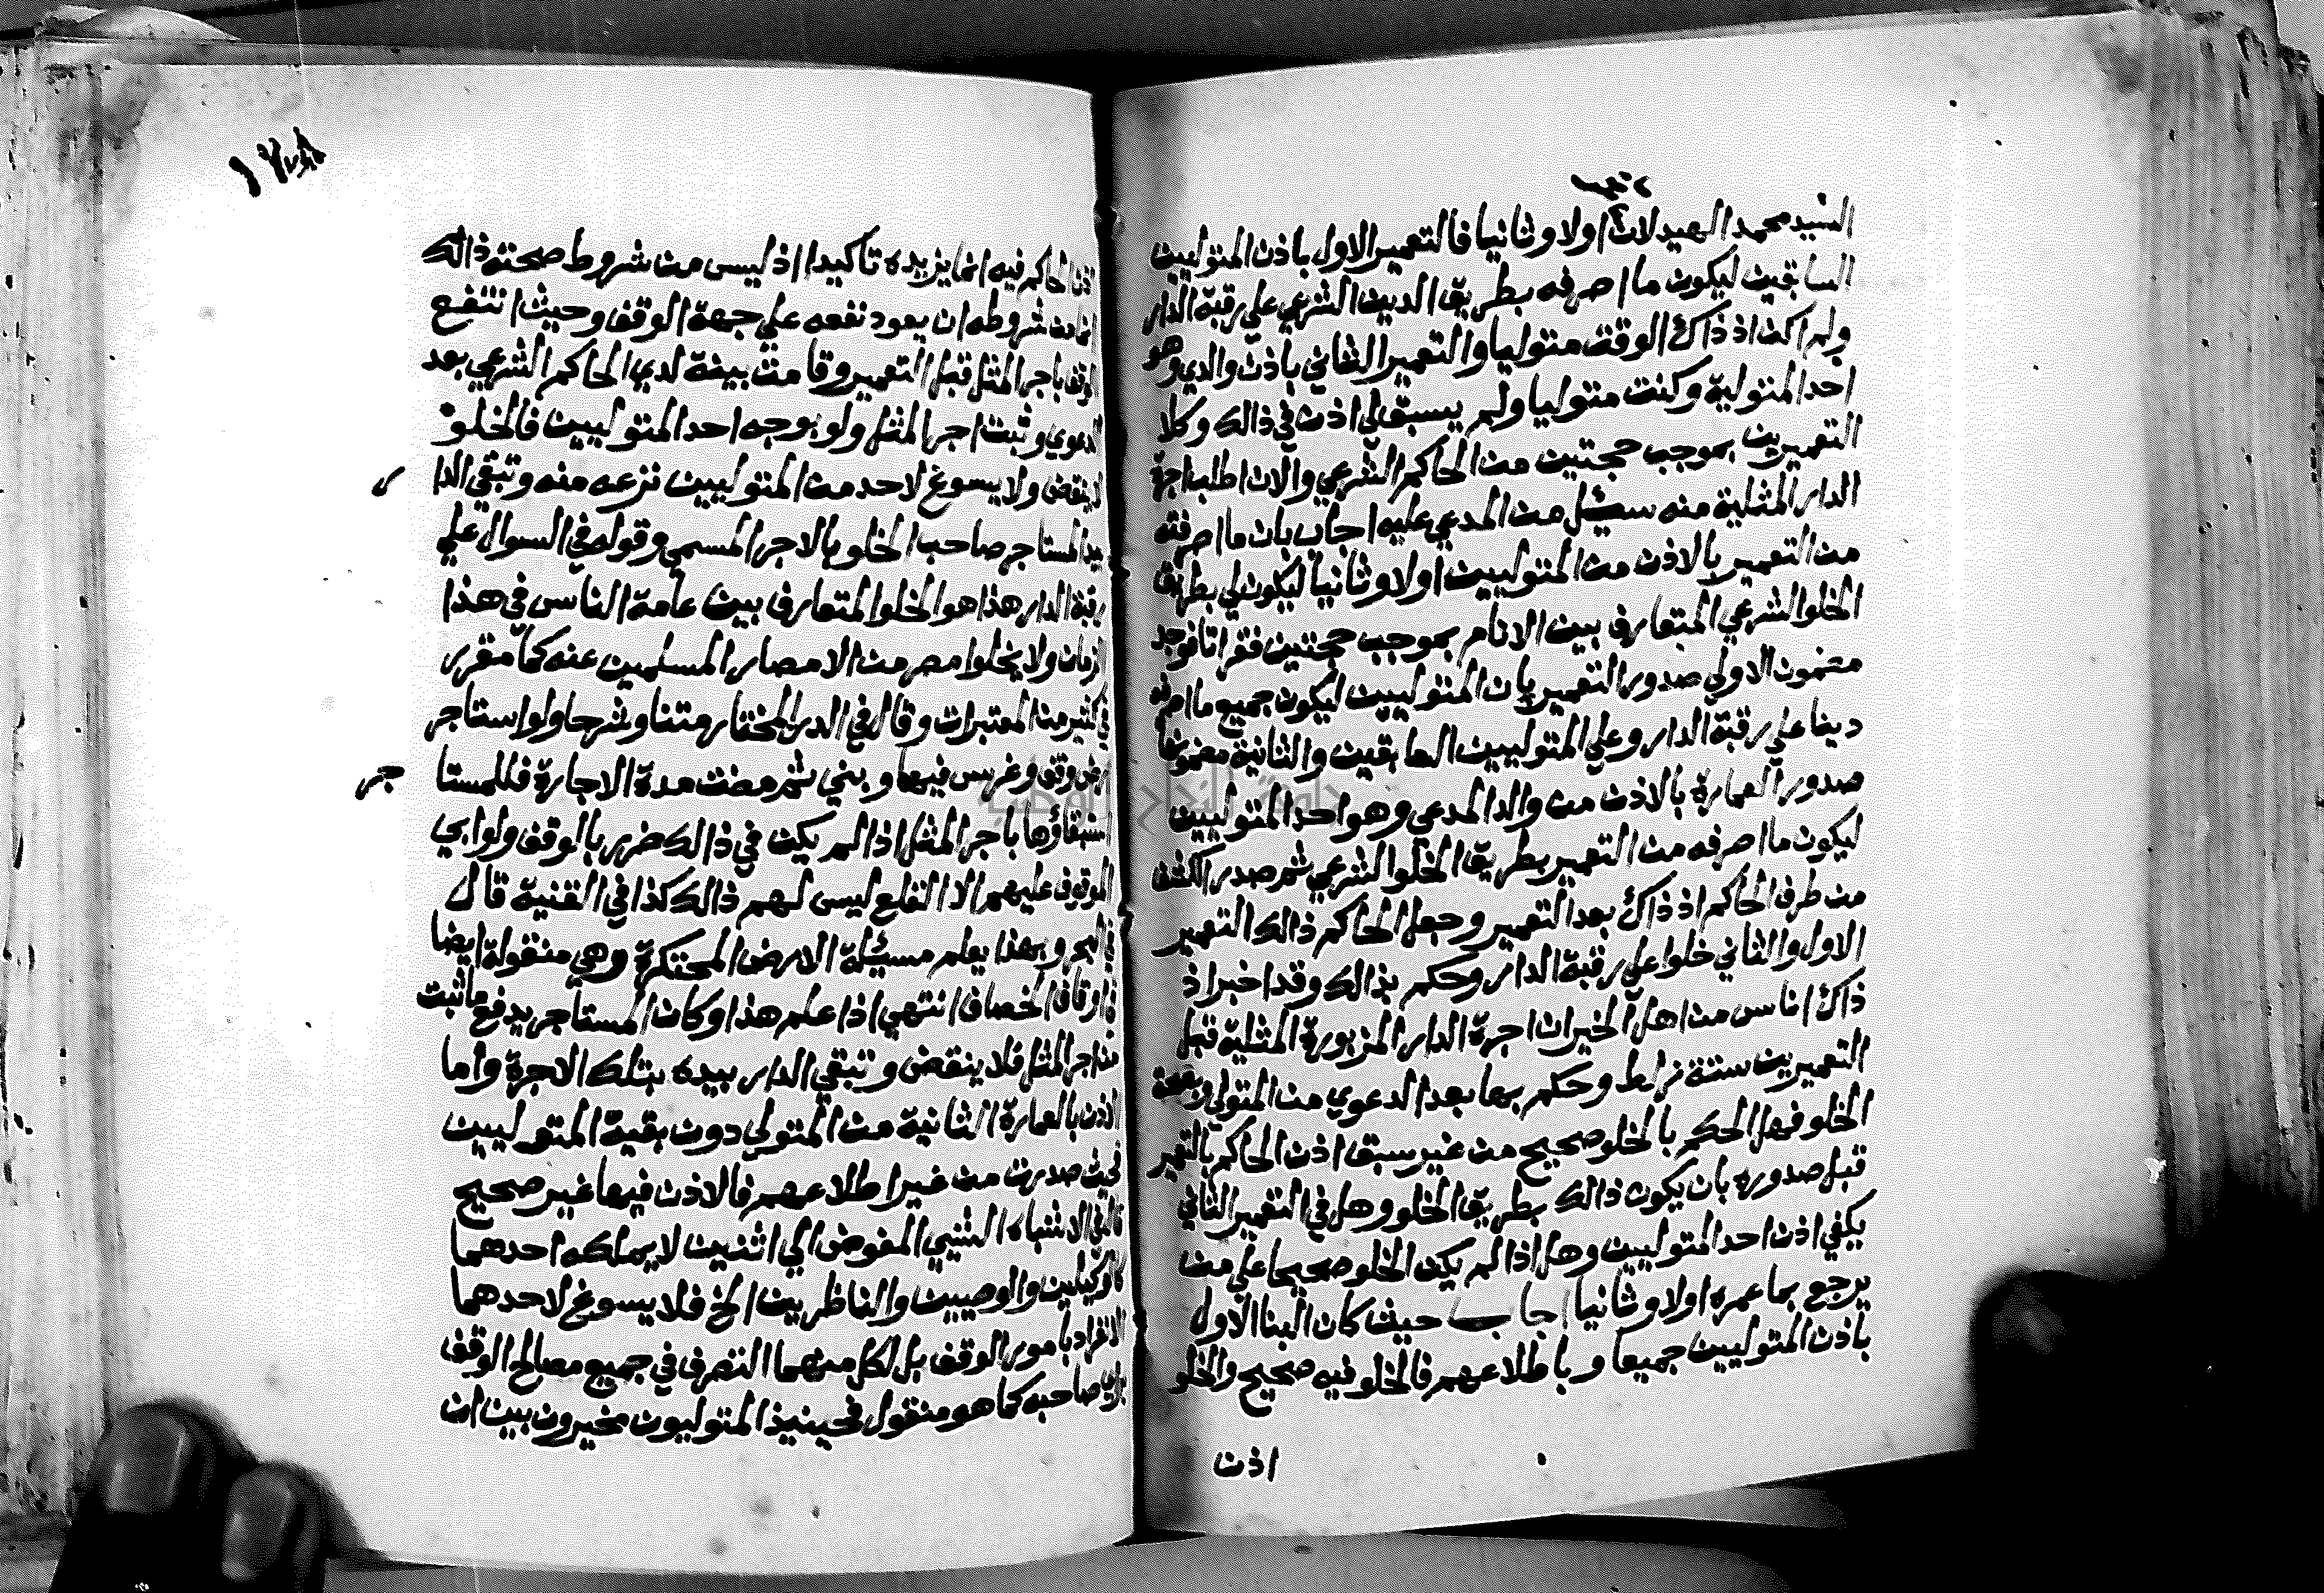 السيد محمد اولا وثانيا فالتعمير الاول باذن المتوليين
السابقين ليكون ما اصرفه بطريق الدين الشرعي علي رقبة الدار
ولم اكن اذ ذاك الوقت متوليا والتعمير الثاني باذن والدي وهو
احد المتولية وكنت متوليا ولم يسبق لي اذن في ذالك وكلا
التعميرين بموجب حجتين من الحاكم الشرعي والان اطلب اجرة
الدار المثلية منه سئل من المدعي عليه اجاب بان ما اصرفته
من التعمير بالاذن من المتوليين اولا وثانيا ليكون لي بطريق
الخلو الشرعي المتعارف بين الانام بموجب حجتين فقراتا فوجد
مضمون الاولي صدور التعمير بان المتوليين ليكون جميع ما اصرفه
دينا علي رقبة الدار وعلي المتوليين السابقين والثانية مضمونها
صدور العمارة بالاذن من والد المدعي وهو احد المتوليين
ليكون ما اصرفه من التعمير بطريق الخلو الشرعي ثم صدر الكشف
من طرف الحاكم اذ ذاك بعد التعمير وجعل الحاكم ذالك التعمير
الاول والثاني خلوا علي رقبة الدار وحكم بذالك وقد اخبر اذ
ذاك اناس من اهل الخبر ان اجرة الدار المزبورة المثلية قبل
التعميرين ستة زلط وحكم بها بعد الدعوي من المتولي وبصحة
الخلو فهل الحكم بالخلو صحيح من غير سبق اذن الحاكم بالتعمير
قبل صدوره بان يكون ذالك بطريق الخلو وهل في التعمير الثاني
يكفي اذن احد المتوليين وهل اذا لم يكن الخلو صحيحا علي من
يرجع بما عمره اولا وثانيا اجاب حيث كان البنا الاول
باذن المتوليين جميعا وباطلاعهم فالخلو فيه صحيح والخلو
اذن
اذن الحاكم فيه انما يزيده تاكيدا اذ ليس من شروط صحته ذالك
انما من شروطه ان يعود نفعه علي جهة الوقف وحيث انتفع
الوقف باجر المثل قبل التعمير وقامت بينة لدي الحاكم الشرعي بعد
الدعوي وثبت اجر المثل ولو بوجه احد المتوليين فالخلو
لا ينقض ولا يسوغ لاحد من المتوليين نزعه منه وتبقي الدا
ر
بيد المستاجر صاحب الخلو بالاجر المسمي وقوله في السوال علي
رقبة الدار هذا هو الخلو المتعارف بين عامة الناس في هذا
الزمان ولا يخلوا مصر من الامصار المسلمين عنه كما مقرر
في كثير من المعتبرات وقال في الدر المختار متنا وشرحا ولو استاجر
ارض وقف وغرس فيها وبني ثم مضت مدة الاجارة فللمستا
جر
استبقاؤها باجر المثل اذا لم يكن في ذالك ضرر بالوقف ولو ابي
الموقوف عليهم الا القلع ليس لهم ذالك كذا في القنية قال
في البحر وبهذا يعلم مسئلة الارض المحتكرة وهي منقولة ايضا
في اوقاف الخصاف انتهي اذا علم هذا وكان المستاجر يدفع ما ثبت
من اجر المثل فلا ينقض وتبقي الدار بيده بتلك الاجرة واما
الاذن بالعمارة الثانية من المتولي دون بقية المتوليين
فحيث صدرت من غير اطلاعهم فالاذن فيها غير صحيح
قال في الاشباه الشيي المفوض الي اثنين لا يملكه احدهما
كالوكيلين والوصيين والناظرين الخ فلا يسوغ لاحدهما
الانفراد بامور الوقف بل لكل منهما التصرف في جميع مصالح الوقف
براي صاحبه كما هو منقول فحينيذ المتوليون مخيرون بين ان